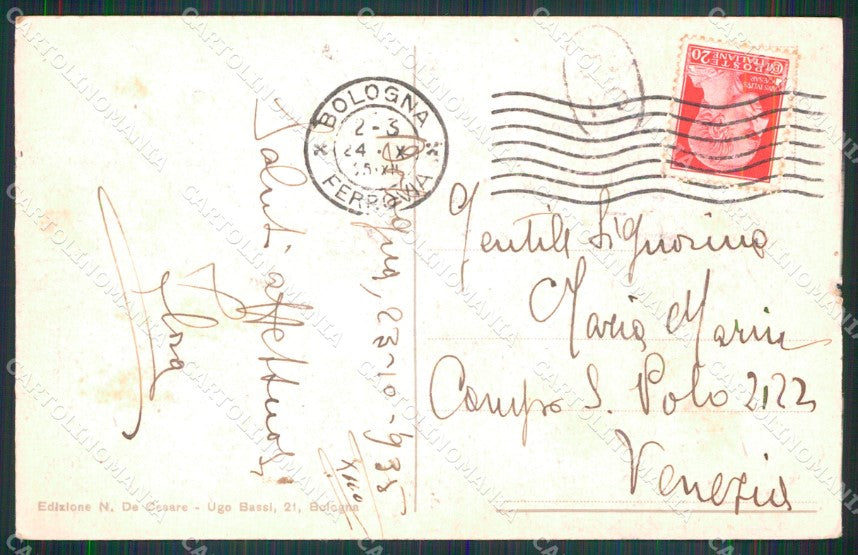 Bologna, 23-10-935
XIII°
Saluti affettuosi
BOLOGNA
2-3
24 . X
35.XII
FERROVIA
POSTE ITALIANE
20
Gentile Signorina
Maria Marin
Campo S. Polo 2122
Venezia
Edizione N. De Cesare - Ugo Bassi, 21, Bologna
CARTOLINOMANIA